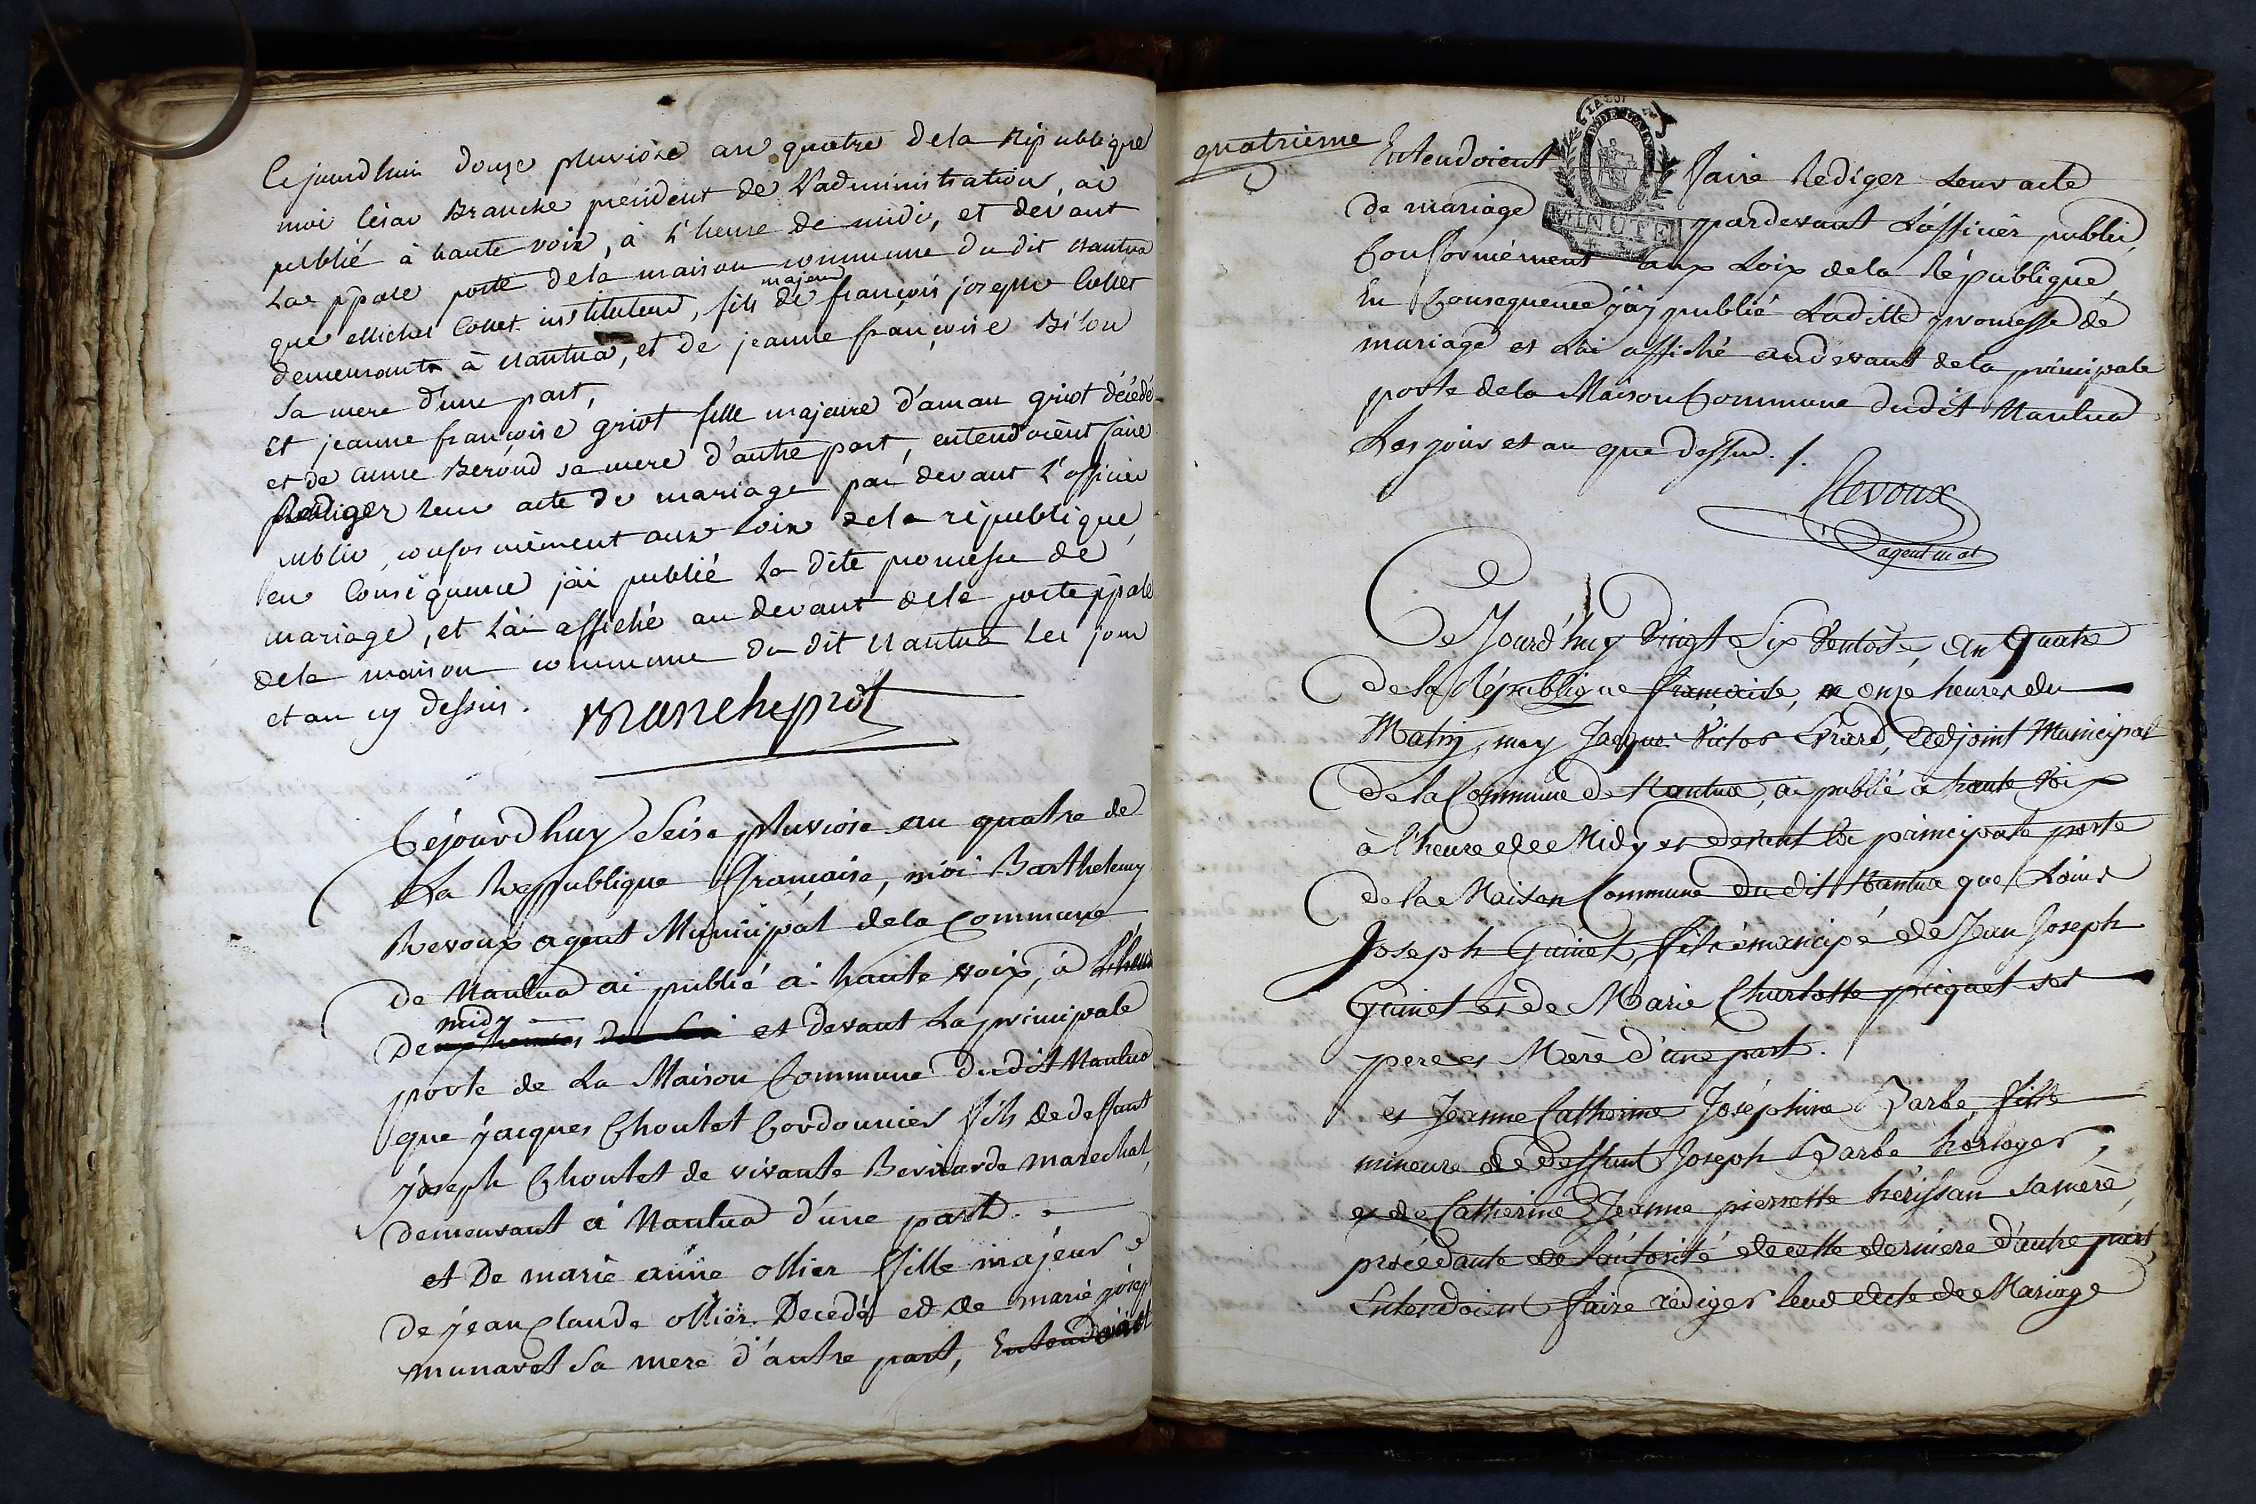 Cejourdhuin douze pluviose an quatre dela Republique
moi César Branche président de L'administration, ai
publié à haute voix, à L'heure de midi, et devant
La ppale porte dela maison commune du dit Nantua
que Michel Collet instituteur, fils majeur de françois joseph Collet
demeurant à Nantua, et de jeanne françoise Bilon
sa mere d'une part,
et jeanne francoise griot fille majeure d'aman griot décédé
et de anne Beroud sa mere d'autre part, entendoient faire
rediger leur acte de mariage par devant L'officier
public, conformément aux Loix dela république
en Conséquence j'ai publié La dite promesse de
mariage, et L'ai affiché au devant dela porte ppale
dela maison commune du dit Nantua Les jour
et an cy dessus.
Branche prdt
Céjourdhuy Seise pluviose an quatre de
La Respublique française, moi Barthelemy
Revoux agent Municipal dela Commune
De Nantua ai publié a haute voix, à L'heure
De midy et devant La principale
porte de La Maison Commune dudit Nantua
que jacques Choulet Cordonnier fils de deffunt
joseph Choulet de vivante Bernarde marechal,
demeurant à Nantua d'une part.
et De marie anne ollier fille majeur
de jean Claude ollier Decedé et de marie josep
munaret Sa mere d'autre part, Entendoint
quatrième
Entendoient faire Rediger Leur acte
de mariage pardevant L'officier public,
MINUTE
Conformément aux Loix dela République
En Consequence j'ay publié Laditte promesse de
mariage et L'ai affiché audevant dela principale
porte dela Maison Commune dudit Nantua
Les jour et an que dessus. /.
Revoux
agent m al
Ce Jourd'huy Vingt Six Ventose, An Quatre
De la République française, a onze heures du
Matin, moy Jacque Victor Adjoint Municipal
De la Commune de Nantua, ai publié à haute Voix
à l'heure de Midy et devant la principale porte
de la Maison Commune du dit Nantua que Louis
Joseph Guinet, fils émancipé de Jean Joseph
Guinet et de Marie Charlotte piquet ses
pere et Mère d'une part.
et Jeanne Catherine Joséphine Barbe, fille
mineure de deffunt Joseph Barbe horloger,
et de Catherine Jeanne pierrette hérissan Sa mère,
procédante de l'autorité de cette derniere d'autre part,
Entendoient faire rédiger leur Acte de Mariage